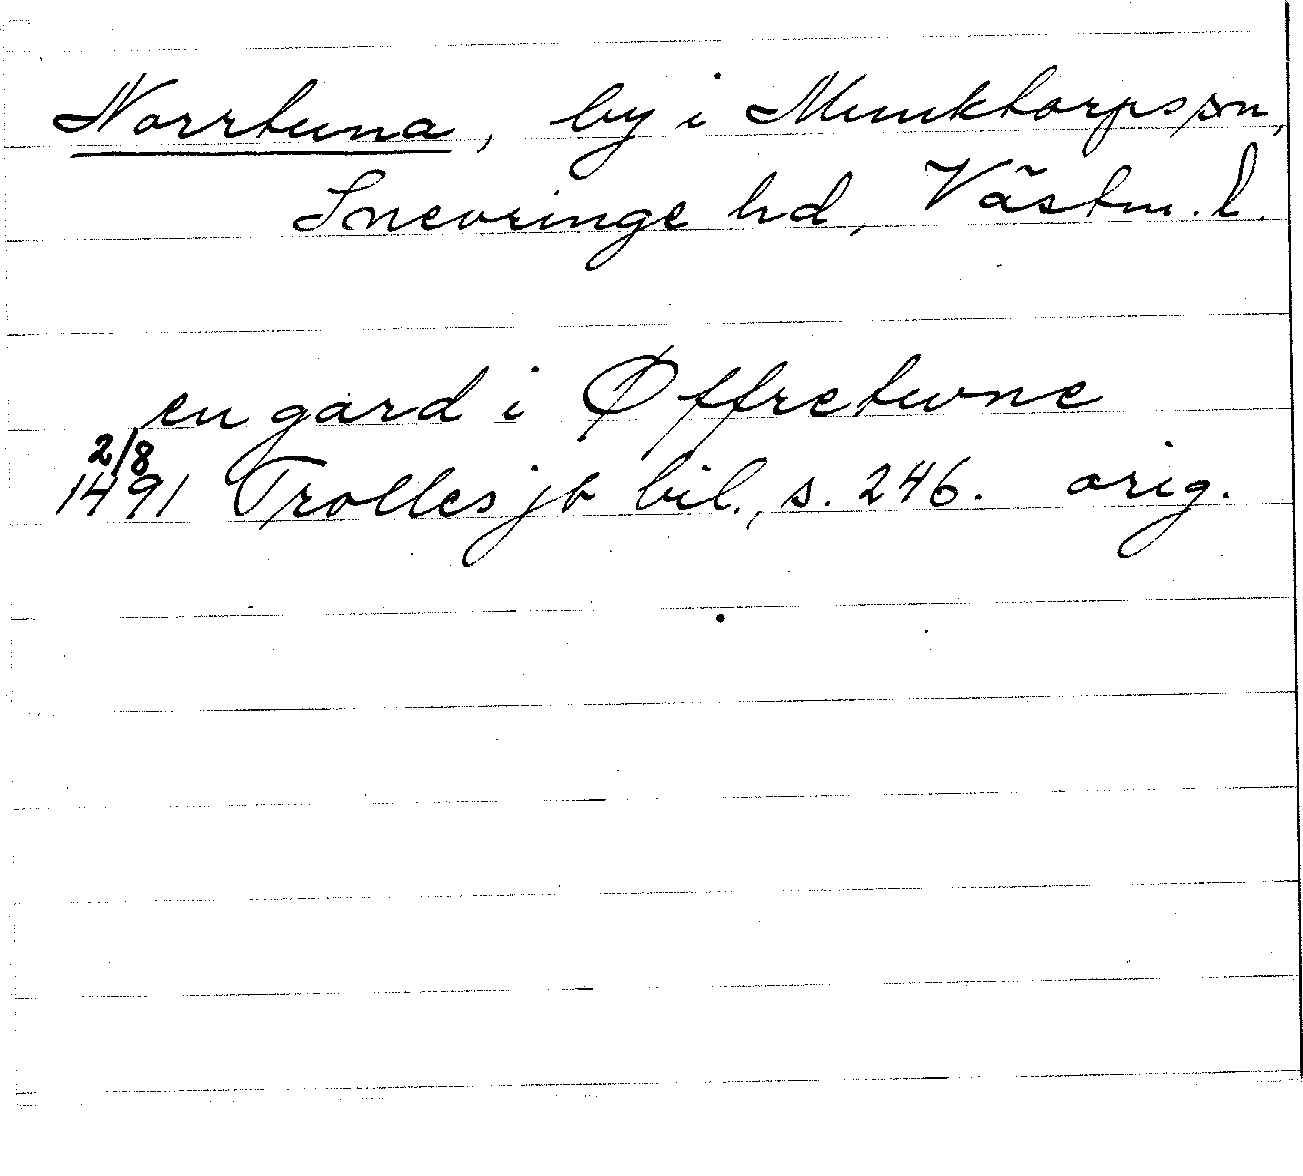 Norrtuna, by i Munktorps sn,
Snevringe hd, Västm. l.
en gard i Øffretwne
2/8
1491 Trolles jb bil., s. 246. orig.